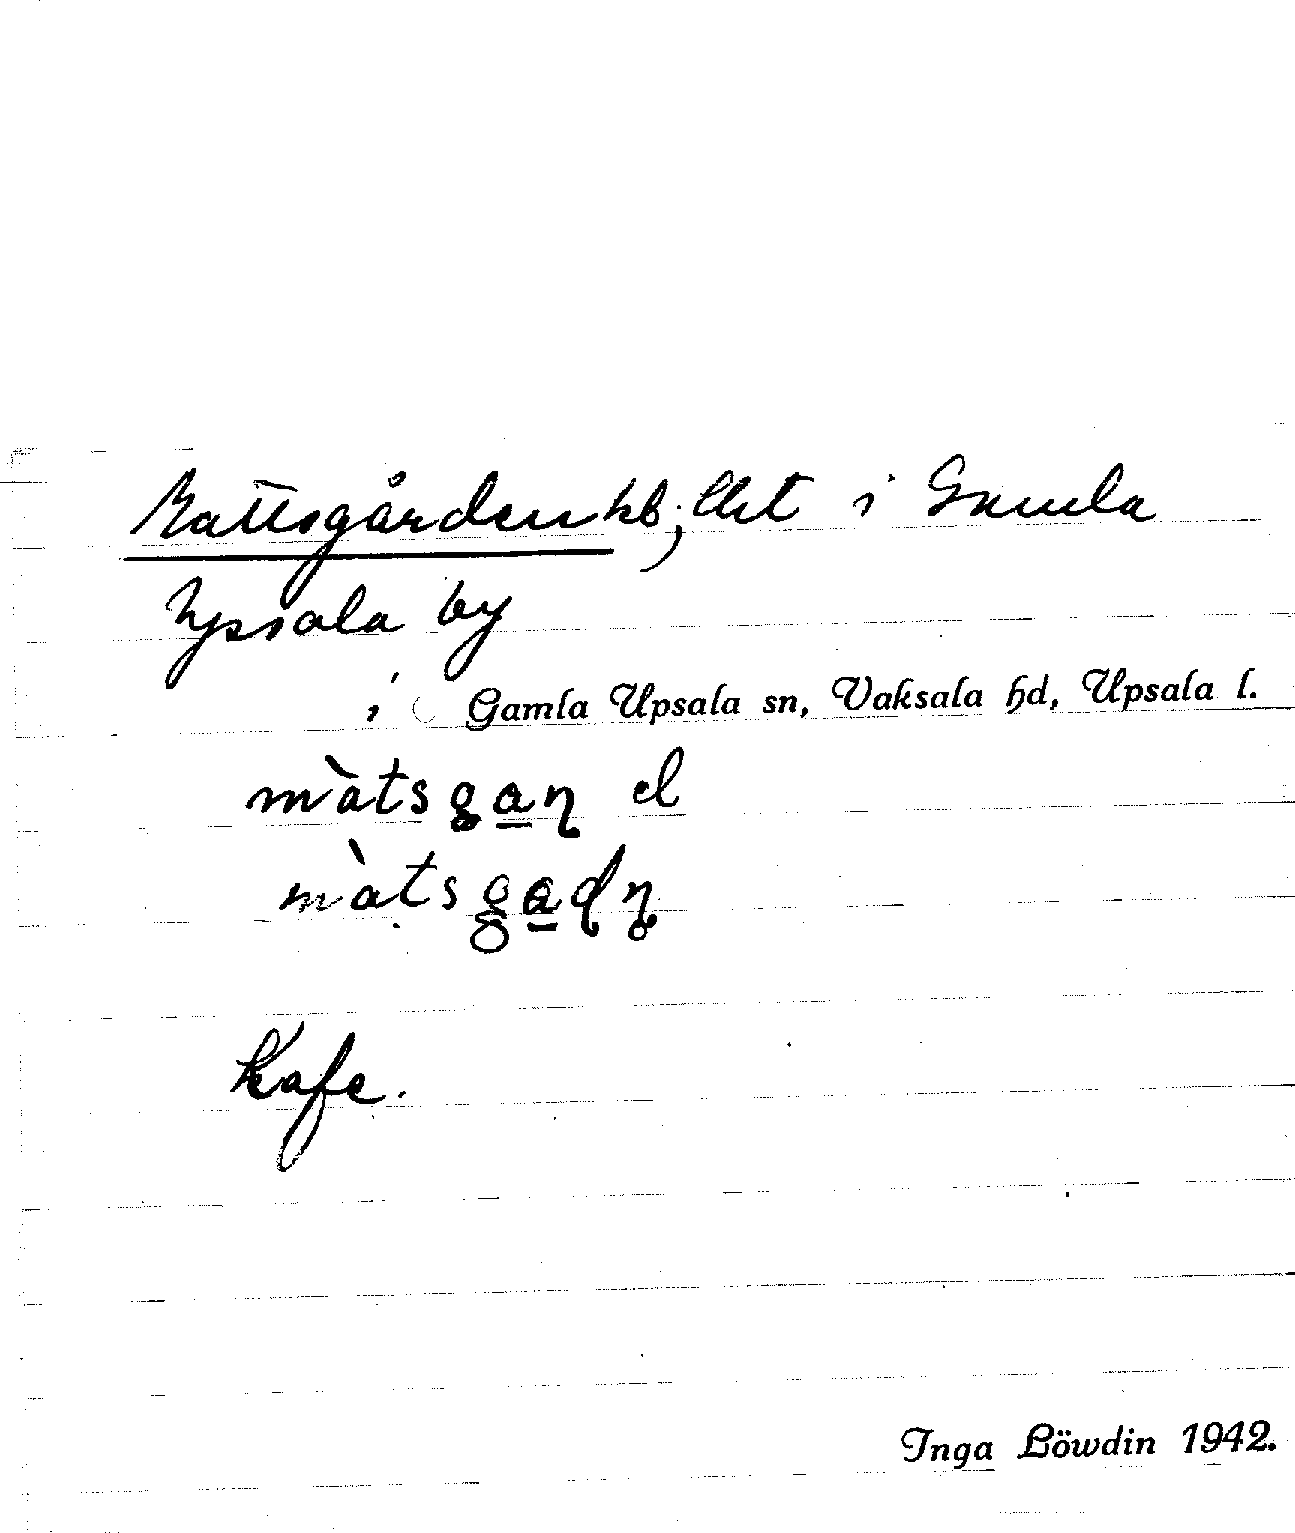 Mattsgården hb; lht i Gamla
Upsala by
i Gamla Upsala sn, Vaksala hd, Upsala l.
màtsgaṇ el
màtsgaḍṇ
Kafe.
Inga Löwdin 1942.